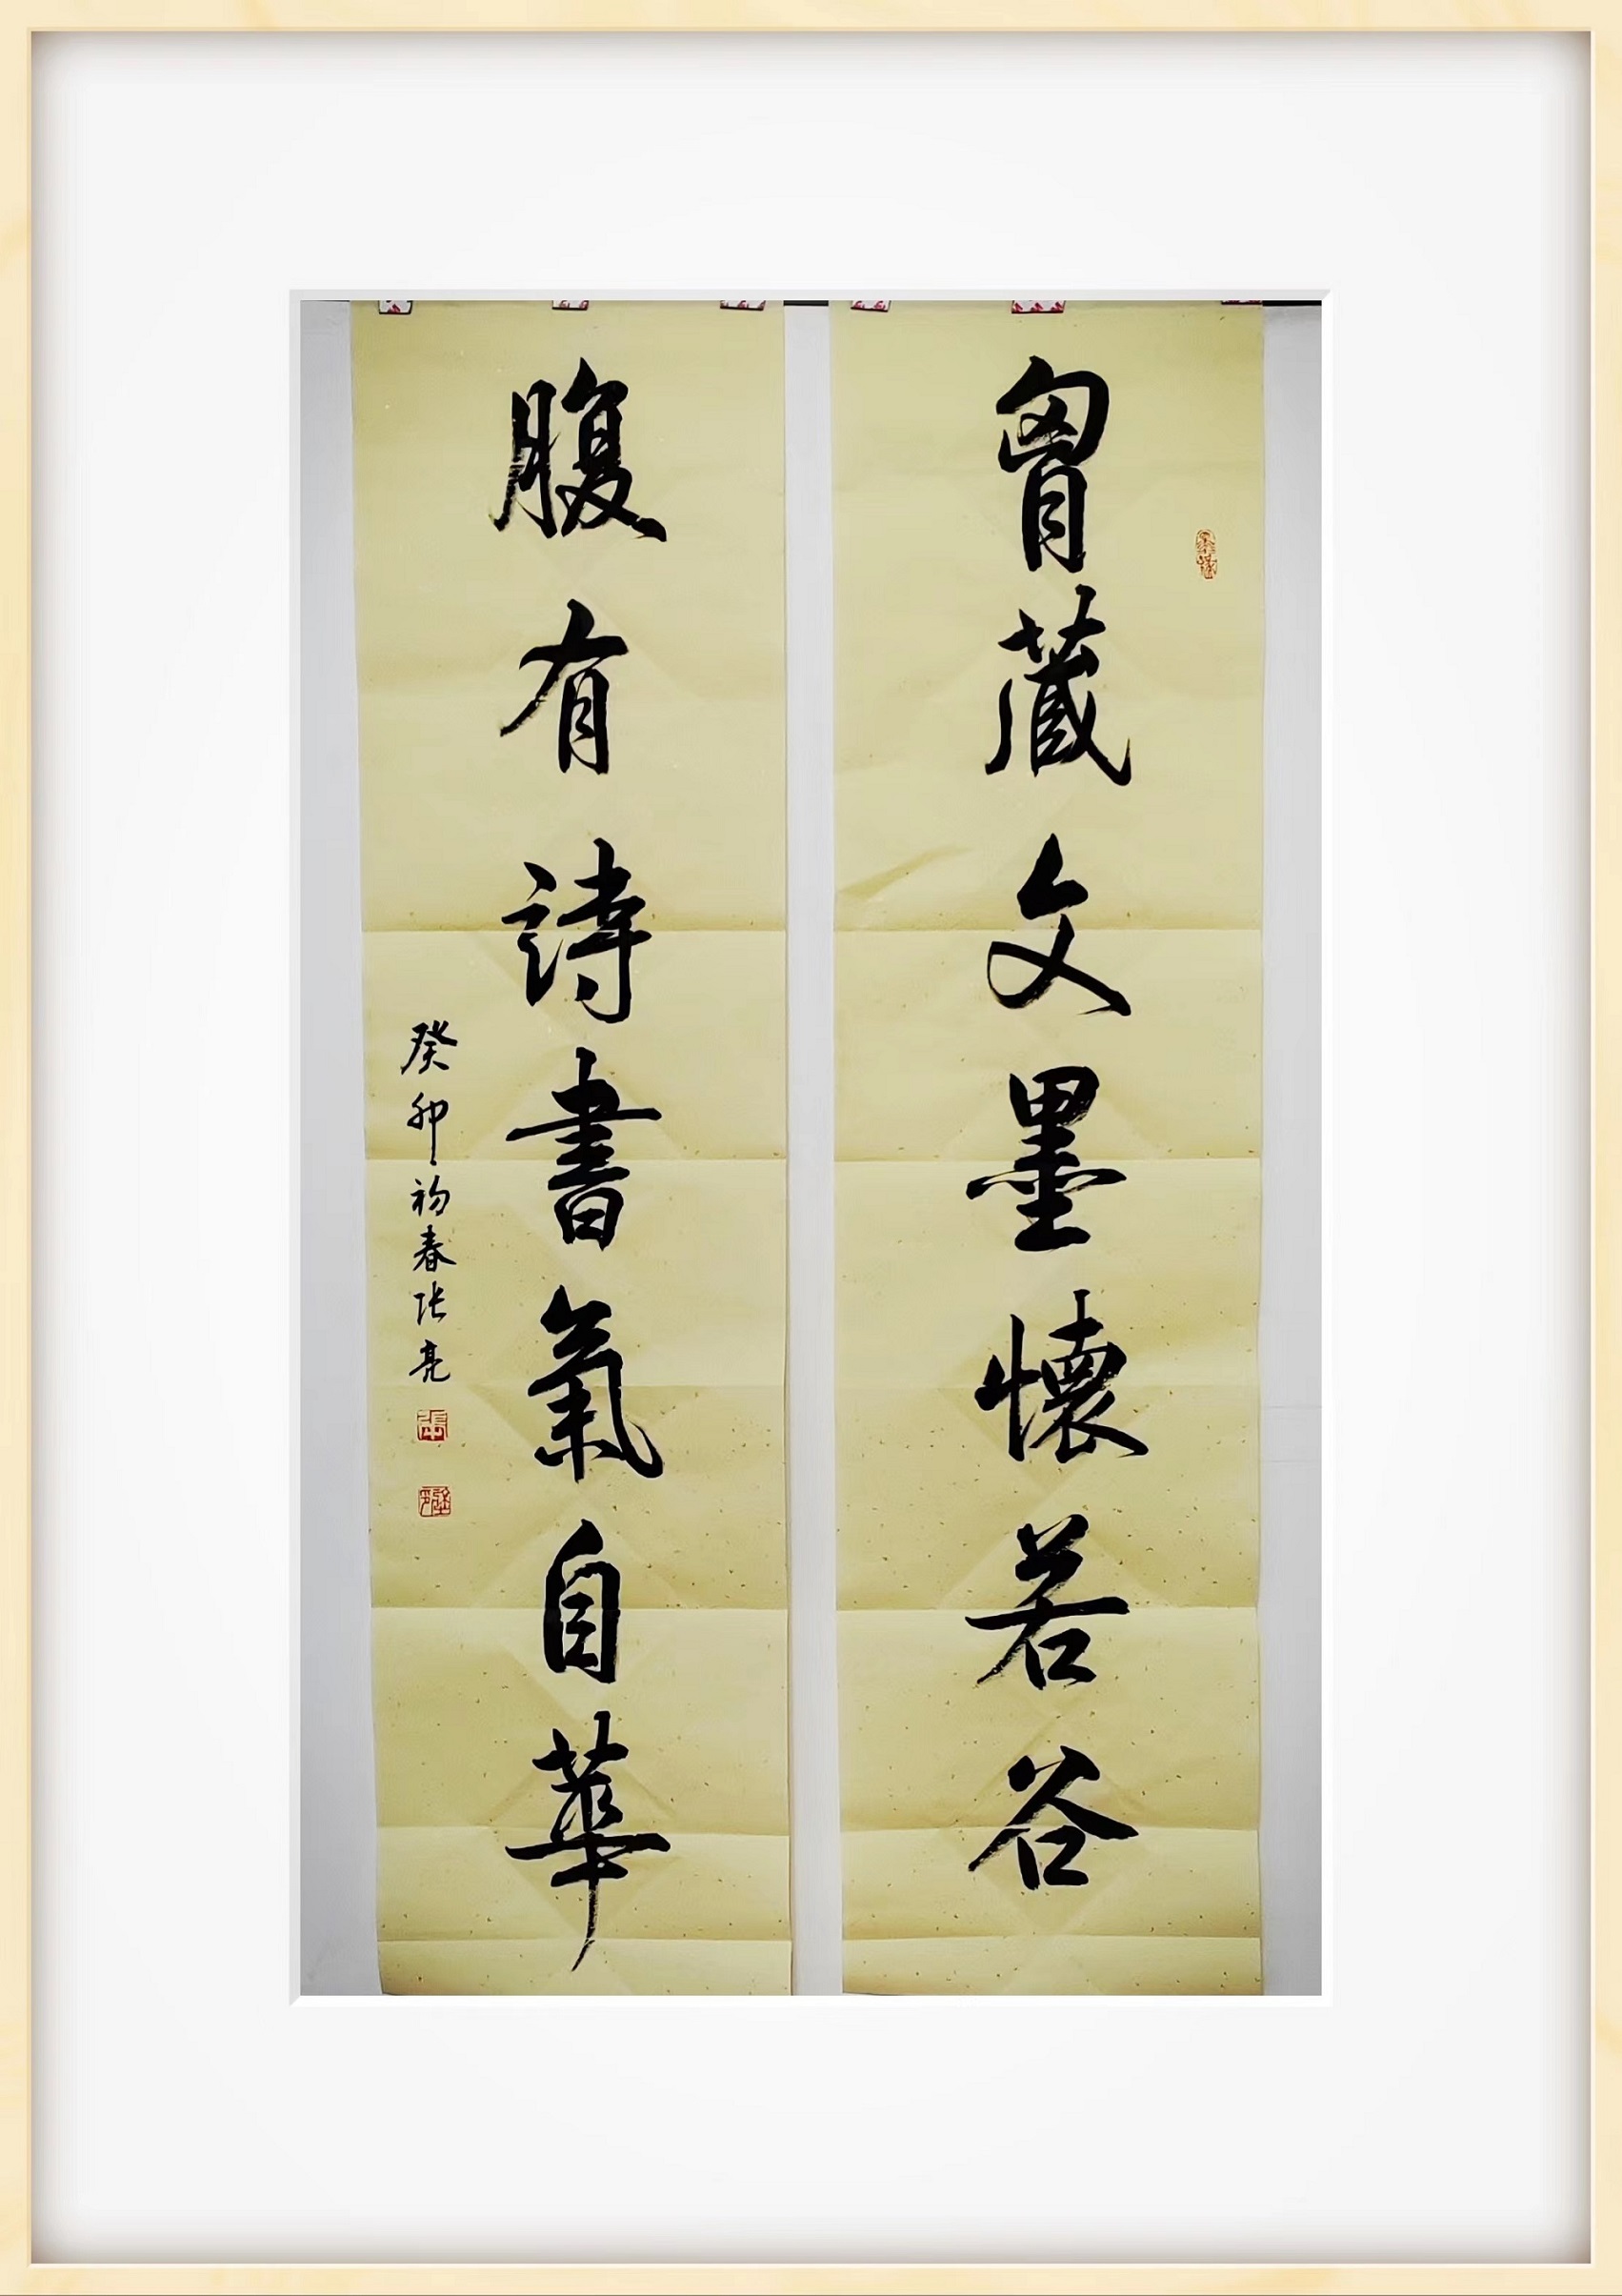 胷藏文墨懷若谷
腹有詩書氣自華
癸卯初春张亮